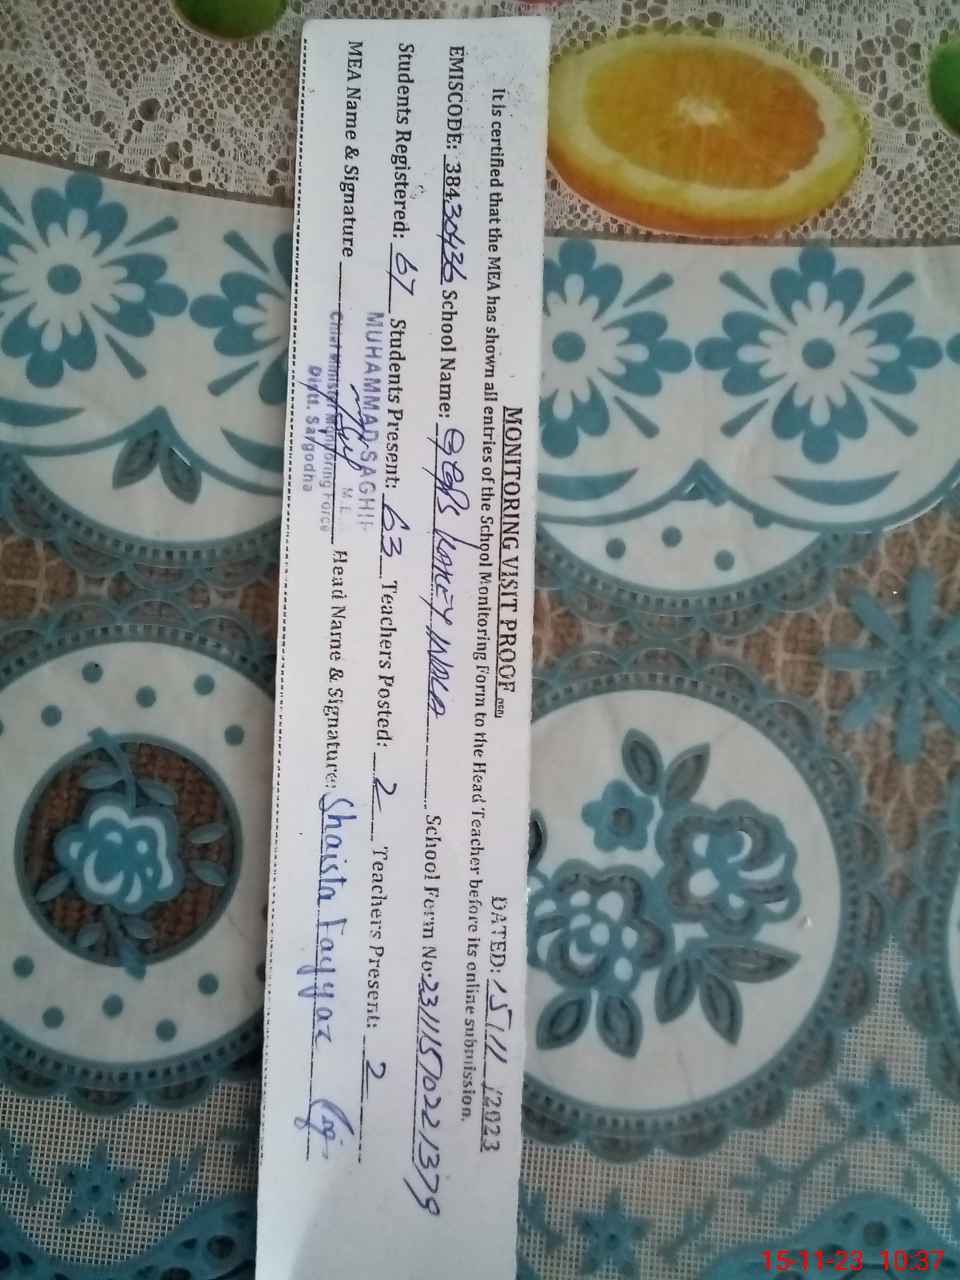 MONITORING VISIT PROOF
DATED: 15/11/2023
It is certified that the MEA has shown all entries of the School Monitoring Form to the Head Teacher before its online submission.
EMISCODE: 38430436 School Name: School Form No: 23111570221379
Students Registered: 67 Students Present: 63 Teachers Posted: 2 Teachers Present: 2
MEA Name & Signature Head Name & Signature: Shaista Fayyaz
MUHAMMAD SAGHIR
Chief Minister Monitoring Force
Distt. Sargodha
15-11-23 10:37